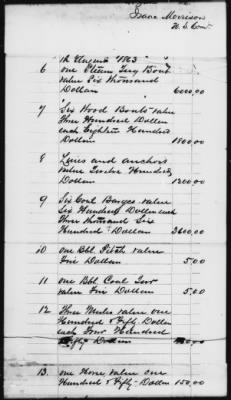 Isaac Morrison
U.S. Cont
in August 1863
6 one Steam Tug Boat
value Six thousand
Dollars 6000.00
7 Six Wood Boats value
three Hundred Dollars
each Eighteen Hundred
Dollars 1800.00
8 Lines and anchors
value Twelve Hundred
Dollars 1200.00
9 Six Coal Barges value
Six Hundred Dollars each
three thousand Six
Hundred Dollars 3600.00
10 one Bbl Pitch value
Five Dollars 5.00
11 one Bbl. Coal Tar
value Five Dollars 5.00
12 three Mules value one
Hundred & Fifty Dollars
each Four Hundred
Fifty Dollars
13. one Horse value one
Hundred & Fifty Dollars 150.00